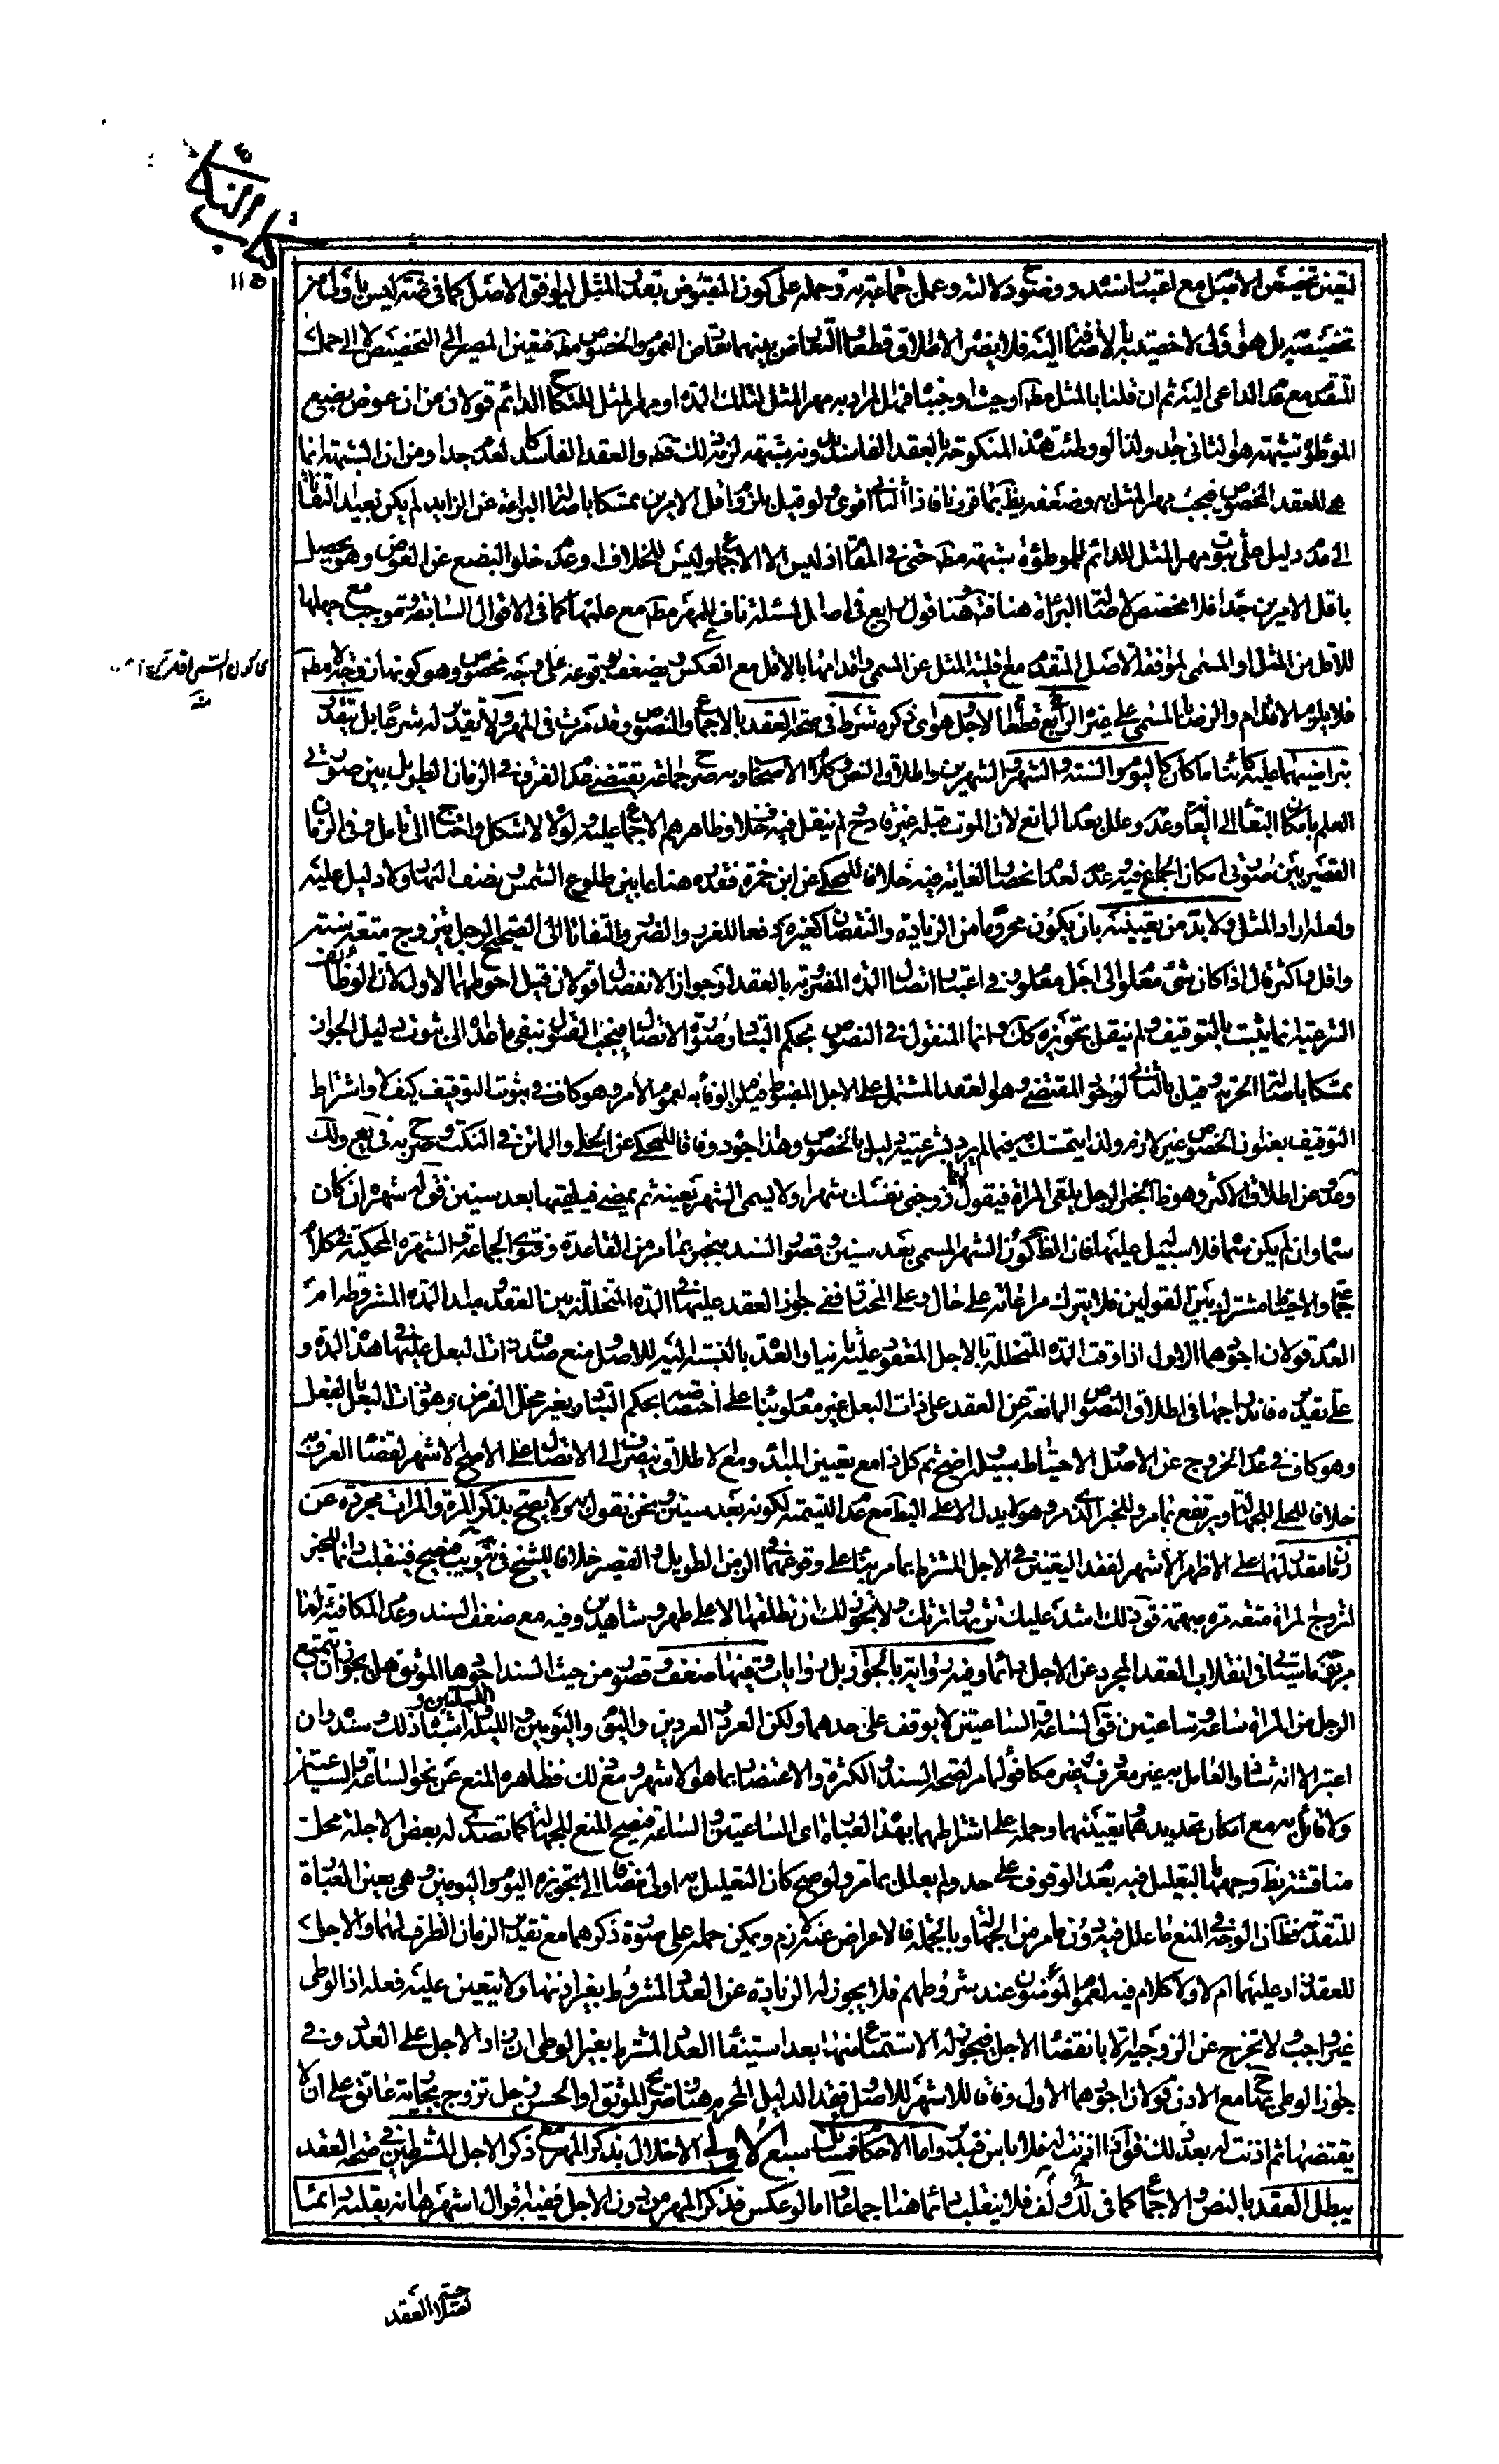 كتاب النكاح
١١٥
لتعين تخصيص الأصل مع اعتبار سنده ووضوح دلالته وعمل جماعة به وحمله على كون المقبوض بقدر المثل ليوافق الأصل كما في ليس بأولى من
تخصيصه بل هو أولى به بالإضافة إليه فلا يضر الإطلاق قطعا التعارض بينهما تعارض العموم والخصوص مط فتعين المصير إلى التخصيص لا إلى الحمل
المتقدم مع عدم الداعي إليه ثم إن قلنا بالمثل مط أو حيث أوجبناه فهل المراد به مهر المثل لتلك المدة أو مهر المثل للنكاح الدائم قولان من أن عوض بضع
الموطوءة بشبهة هو الثاني ولذا لو وطئت هذه المنكوحة بالعقد الفاسد بدونه بشبهة لزمه ذلك فقط والعقد الفاسد لغو جدا ومن أن الشبهة إنما
هي للعقد المخصوص فيجب مهر المثل به وضعفه يظهر بما قررناه فإذا الثاني أقوى ولو قيل بلزوم أقل الأمرين تمسكا بأصالة البراءة عن الزايد لم يكن بعيدا التفاتا
إلى عدم دليل على ثبوت مهر المثل للدائم للموطوءة بشبهة مط حتى في المقام إذ ليس إلا الإجماع وليس للخلاف وعدم خلو البضع عن العوض وهو يحصل
بأقل الأمرين جدا فلا مخصص لأصالة البراءة هنا فت وهنا قول رابع في أصل المسئلة ناف للمهر مط مع علمها كما في الأقوال السابقة وموجب مع جهلها
للأقل من المثل والمسمى لموافقة الأصل المتقدم مع قلة المثل عن المسمى وإقدامها بالأقل مع العكس ويضعف بوقوعه على وجه مخصوص وهو كونها زوجة لا مط
فلا يلزم الإقدام والرضا بالمسمى على غيره الرابع قطعا الأجل هو أي ذكره شرط في صحة العقد بالإجماع والنصوص وقد مرت في المهر ولا تقدير له شرعا بل يتقدر
بتراضيهما عليه كائنا ما كان كاليوم والسنة والشهر والشهرين وإطلاق النصوص وكلام الأصحاب وبه صرح جماعة يقتضي عدم الفرق في الزمان الطويل بين صورتي
العلم بإمكان البقاء إلى الغاية وعدمه وعلل بعدم المانع لأن الموت قبله غير قادح ولم ينقل فيه خلاف وظاهرهم الإجماع عليه ولولاه لأشكل واحتاج إلى تأمل وفي الزمان
القصير بين صورتي إمكان الجماع فيه وعدمه لعدم انحصار الغاية فيه خلافا للمحكي عن ابن حمزة فقدره هنا بما بين طلوع الشمس ونصف النهار ولا دليل عليه
ولعله أراد المثل ولا بد من تعيينه بأن يكون محروسا من الزيادة والنقصان كغيره دفعا للغرر والضرر والتفاتا إلى الصحيح الرجل يتزوج متعة سنة
وأقل وأكثر قال إذا كان شيء معلوم إلى أجل معلوم وفي اعتبار اتصال المدة المضروبة بالعقد أو جواز الانفصال قولان قيل أحوطهما الأول لأن الوظائف
الشرعية إنما يثبت بالتوقيف ولم ينقل تجويزه كك وإنما المنقول في النصوص بحكم التبادر صورة الاتصال فيجب القول بنفي ما عداه إلى ثبوت دليل الجواز
تمسكا بأصالة الحرمة وقيل بالثاني لوجود المقتضي وهو العقد المشتمل على الأجل المضبوط فيلزم الوفاء به لعموم الأمر وهو كاف في ثبوت التوقيف كيف لا واشتراط
التوقيف بعنوان الخصوص غير لازم ولذا يتمسك به فيما لم يرد بشرعيته دليل بالخصوص وهذا أجود وفاقا للمحكي عن الحلي والماتن في النكت وصرح به في يع ولك
وعدوه عن إطلاق الأكثر وهو ظاهر الخبر الرجل يلقى المرأة فيقول لها زوجني نفسك شهرا ولا يسمي الشهر بعينه ثم يمضي فيلقيها بعد سنين فقال له شهره إن كان
سماه وإن لم يكن سماه فلا سبيل عليها فإن الظاهر كون الشهر المسمى بعد سنين وقصور السند منجبر بما مر من القاعدة وفتوى الجماعة والشهرة المحكية في كلام
جماعة والاحتياط مشترك بين القولين فلا يترك مراعاته على حال وعلى المختار ففي جواز العقد عليها في المدة المتخللة بين العقد ومبدأ المدة المشروطة أم
العدم قولان أجودهما الأول إذا وفت المدة المتخللة بالأجل المعقود عليه ثانيا والعدة بالنسبة إليه للأصل ومنع صدق ذات البعل عليها في هذه المدة و
على تقديره فاندراجها في إطلاق النصوص المانعة عن العقد على ذات البعل غير معلوم بناء على اختصاصه بحكم التبادر بغير محل الفرض وهو ذات البعل بالفعل
وهو كاف في عدم الخروج عن الأصل والاحتياط سبيله واضح ثم كل ذا مع تعيين المبدأ ومع الإطلاق ينصرف إلى الاتصال على الأصح الأشهر لقضاء العرف به
خلافا للحلي للجهالة ويرتفع بما مر وللخبر الذي مر وهو لا يدل إلا على البطلان مع عدم التسمية لكونه بعد سنين ونحن نقول به ولا يصح بذكر المرة والمرات مجردة عن
زمان مقدر لهما على الأظهر الأشهر لفقد التعيين في الأجل المشترط بما مر بناء على وقوعهما في الزمن الطويل والقصير خلافا للشيخ في يب فيصح فينقلب دائما للخبر
أتزوج المرأة متعة مرة مبهمة فقال ذلك أشد عليك ترثها وترثك ولا يجوز لك أن تطلقها إلا على طهر وشاهدين وفيه مع ضعف السند وعدم المكافئة لما
مر وما سيأتي في انقلاب العقد المجرد عن الأجل دائما وفي رواية بالجواز بل روايات وفيها ضعف وقصور من حيث السند أجودها الموثق هل يجوز أن يتمتع
الرجل من المرأة ساعة وساعتين فقال الساعة والساعتين لا يوقف على حدهما ولكن العرد والعردين واليوم واليومين والليلة والليلتين وأشباه ذلك وسنده وإن
اعتبر إلا أنه شاذ والعامل به غير معروف غير مكافؤ لما مر لصحة السند والكثرة والاعتضاد بما هو الأشهر ومع ذلك فظاهره المنع عن نحو الساعة والساعتين
ولا قائل به مع إمكان تحديدهما وتعيينهما وحمله على اشتراطهما بهذه العبارة أي الساعتين والساعة فيصح المنع للجهالة كما تصدى له بعض الأجلة محل
مناقشة يظهر وجهها بالتعليل فيه بعدم الوقوف على حد ولم يعلل بما مر ولو صح كان التعليل به أولى مضافا إلى تجويزه اليوم واليومين وهي بعين العبارة
المتقدمة فظاهر أن الوجه في المنع ما علل فيه دون ما مر من الجهالة وبالجملة فالإعراض عنه لازم ويمكن حمله على صورة ذكرهما مع تقدير الزمان الظرف لهما والأجل
للعقد زاد عليهما أم لا ولا كلام فيه لعموم المؤمنون عند شروطهم فلا يجوز له الزيادة عن العدد المشروط بغير إذنها ولا يتعين عليه فعله إذ الوطي
غير واجب ولا تخرج عن الزوجية إلا بانقضاء الأجل فيجوز له الاستمتاع منها بعد استيفاء العدد المشترط بغير الوطي إن زاد الأجل على العدد وفي
جواز الوطي ح مع الإذن قولان أجودهما الأول وفاقا للأشهر للأصل وفقد الدليل المحرم هنا وصريح الموثق أو الحسن رجل تزوج بجارية عاتق على أن لا
يقتضها ثم أذنت له بعد ذلك فقال إذا أذنت له فلا بأس وأما الأحكام فمسائل سبع الأولى الإخلال بذكر المهر مع ذكر الأجل المشترطين في صحة العقد
يبطل العقد بالنص والإجماع كما في لك وكشف فلا ينقلب دائما هنا إجماعا أما لو عكس فذكر المهر من دون الأجل ففيه أقوال أشهرها أنه يقلبه دائما